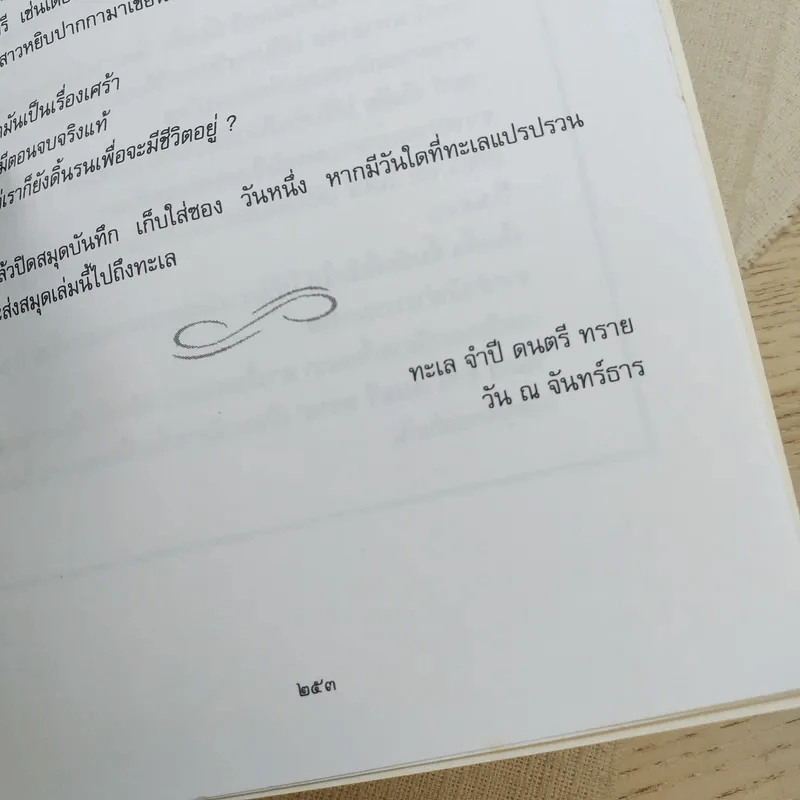 รี เช่นเดีย
สาวหยิบปากกามาเขียน
มันเป็นเรื่องเศร้า
มีตอนจบจริงแท้
เราก็ยังดิ้นรนเพื่อจะมีชีวิตอยู่ ?
ล้วปิดสมุดบันทึก เก็บใส่ซอง วันหนึ่ง หากมีวันใดที่ทะเลแปรปรวน
ส่งสมุดเล่มนี้ไปถึงทะเล
ทะเล จำปี ดนตรี ทราย
วัน ณ จันทร์ธาร
๒๕๓